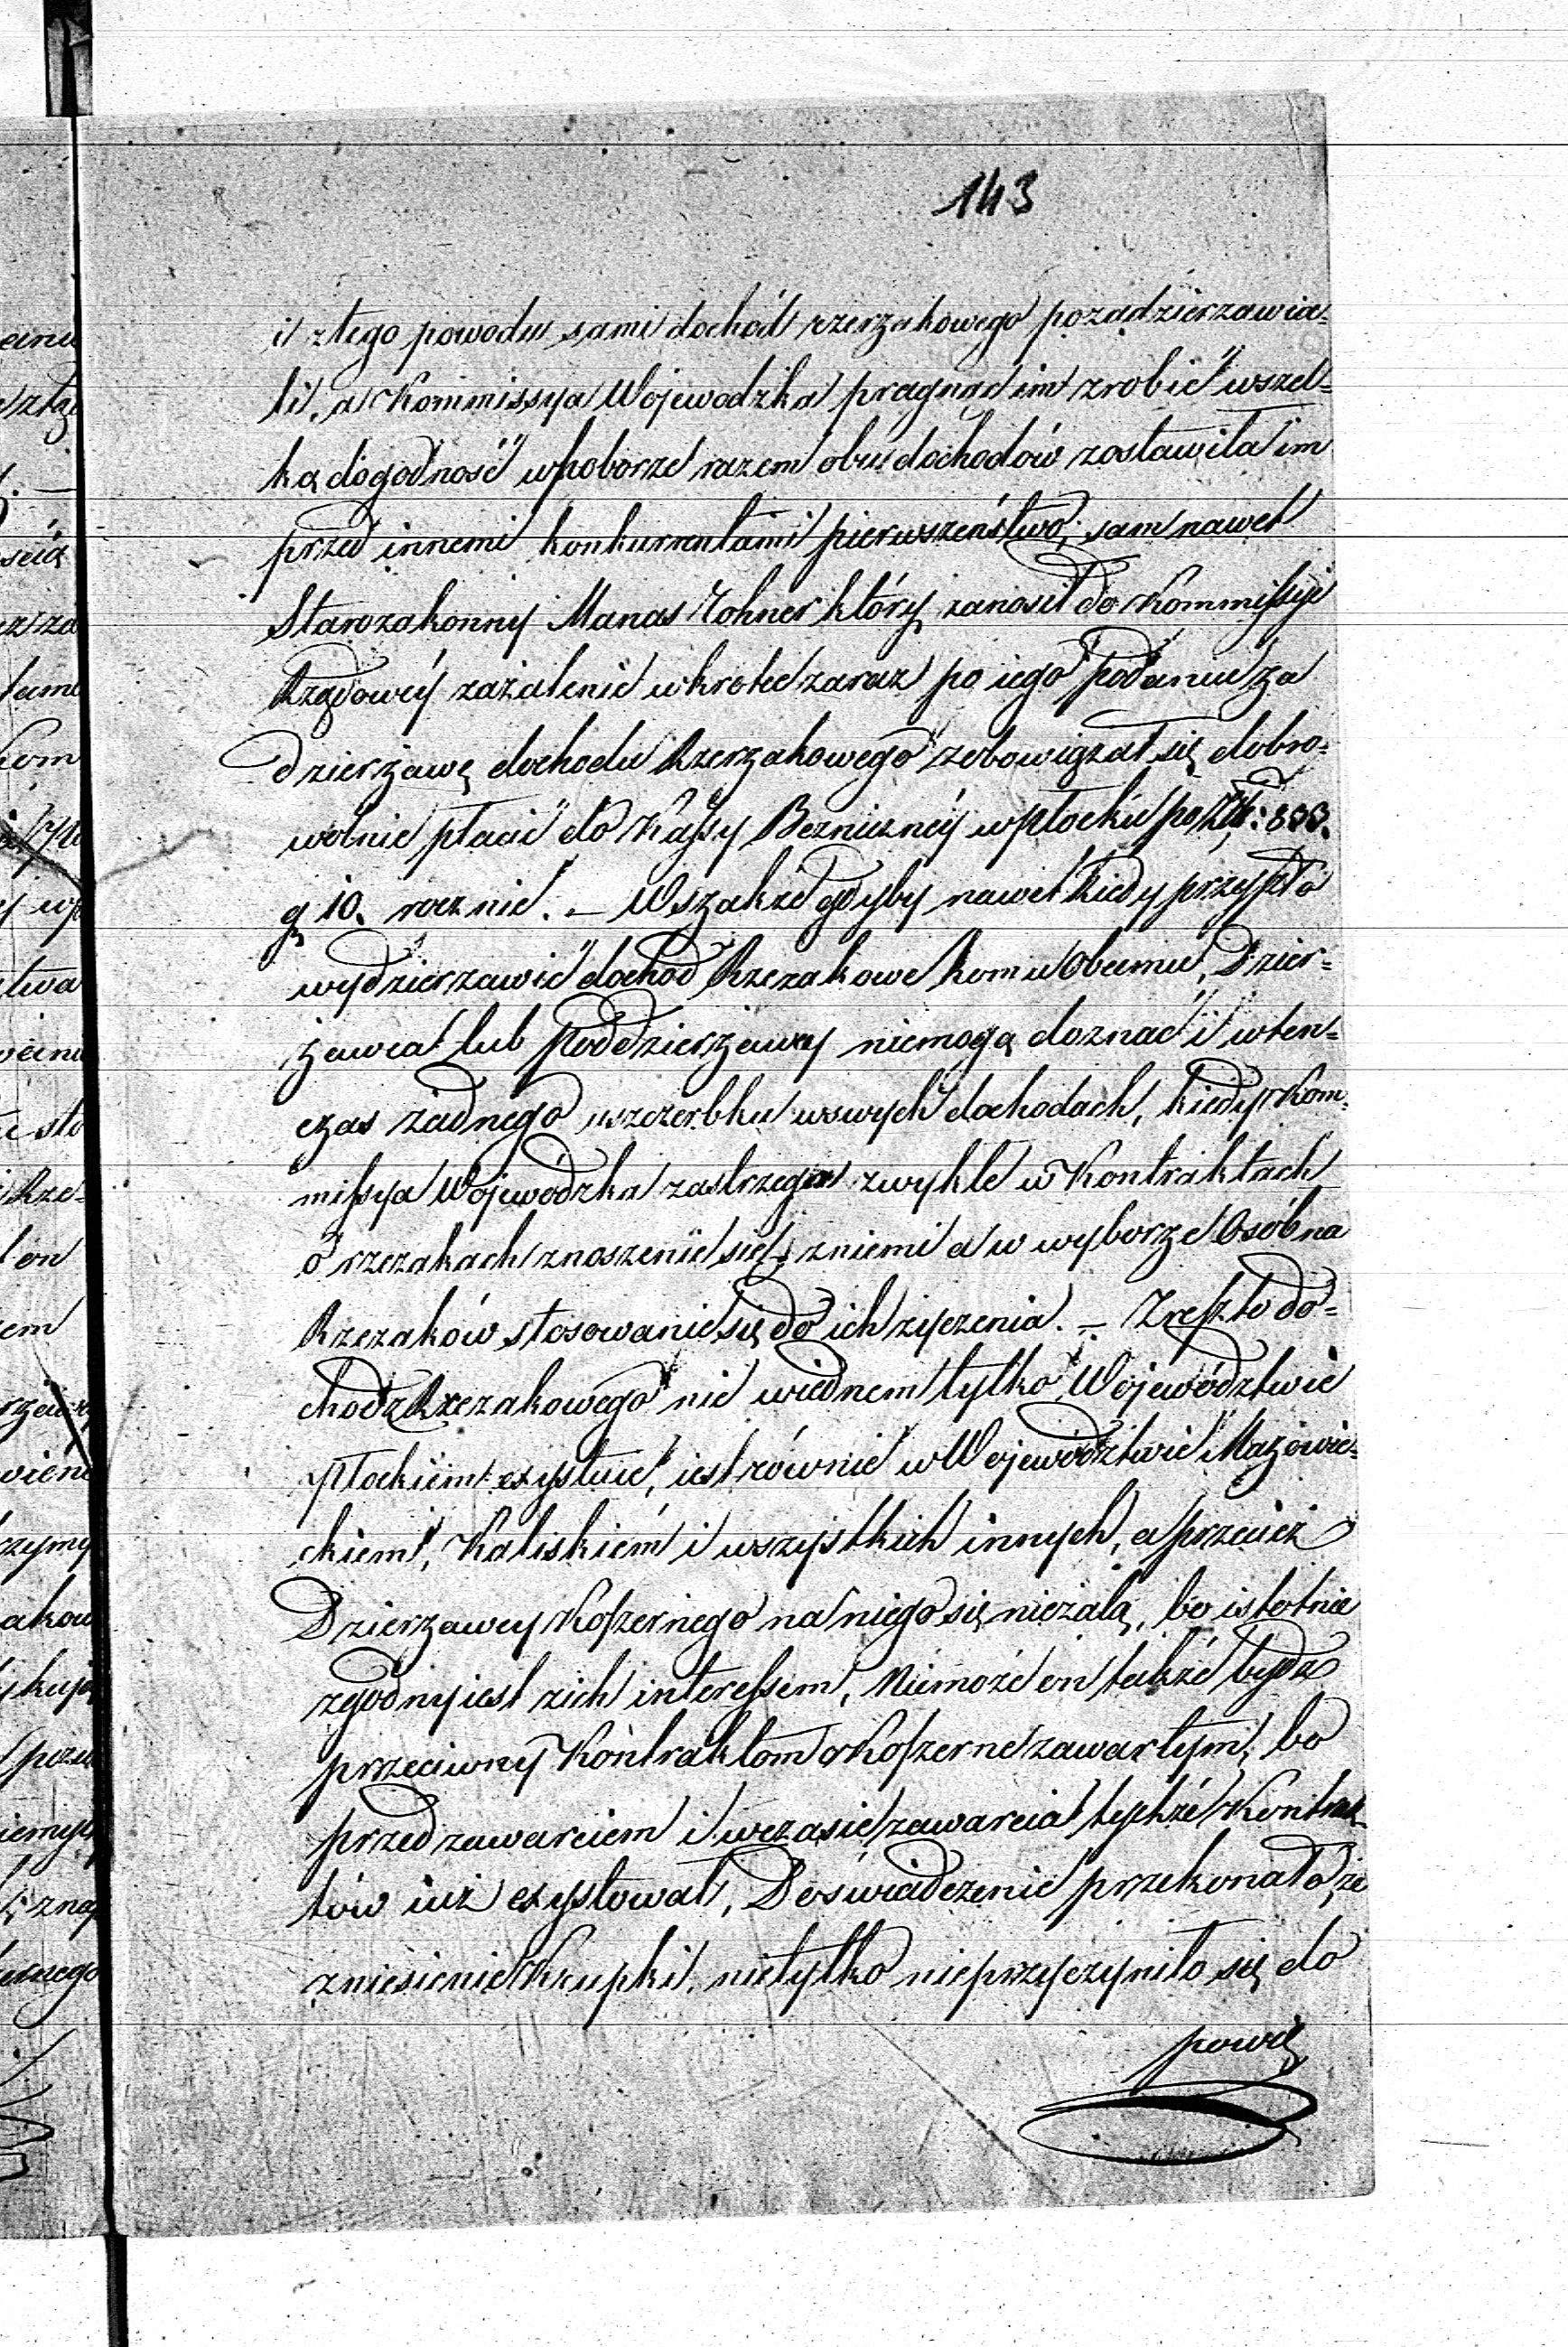 143
i z tego powodu sami dochód rzezakowego pozadzierzawia-
li, a Kommissya Wojewodzka pragnąc im zrobić wszel-
ką dogodność w poborze razem obu dochodów zostawiła im
przed innemi konkurrentami pierwszeństwo; sam nawet
Starozakonny Manas Zohner który zanosił do Kommissyi
Rządowéy zażalenie wkrotce zaraz po iego podaniu za
dzierżawę dochodu Rzezakowego zobowiązał się dobro-
wolnie płacić do Kassy Bożniczney w Płocku po Złt: 800.
gr 10. rocznie. – Wszakże gdyby nawet kiedy przyszło
wydzierzawić dochod Rzezakowe komu Obcemu, Dzier-
żawca lub Poddzierżawcy niemogą doznać i wten-
czas żadnego uszczerbku w swych dochodach, kiedy Kom-
missya Wojewódzka zastrzega zwykle w Kontraktach
o rzezakach znoszenie się z niemi a w wyborze Osób na
Rzezaków stosowanie się do ich życzenia. – Zreszto do-
chod Rzezakowego nie w iednem tylko Województwie
Płockiem exystuie, iest równie w Województwie Mazowie-
ckiem, Kaliskiém i wszystkich innych, a przecież
Dzierżawcy Koszernego na niego się nieżalą, bo istotnie
zgodny iest z ich interessem, Niemoże on także bydź
przeciwny Kontraktom o Koszerne zawartym, bo
przed zawarciem i w czasie zawarcia tychże Kontrak-
tów iuż exystował, Doświadczenie przekonało, że
zniesienie Krupki, nietylko nieprzyczyniło się do
powię